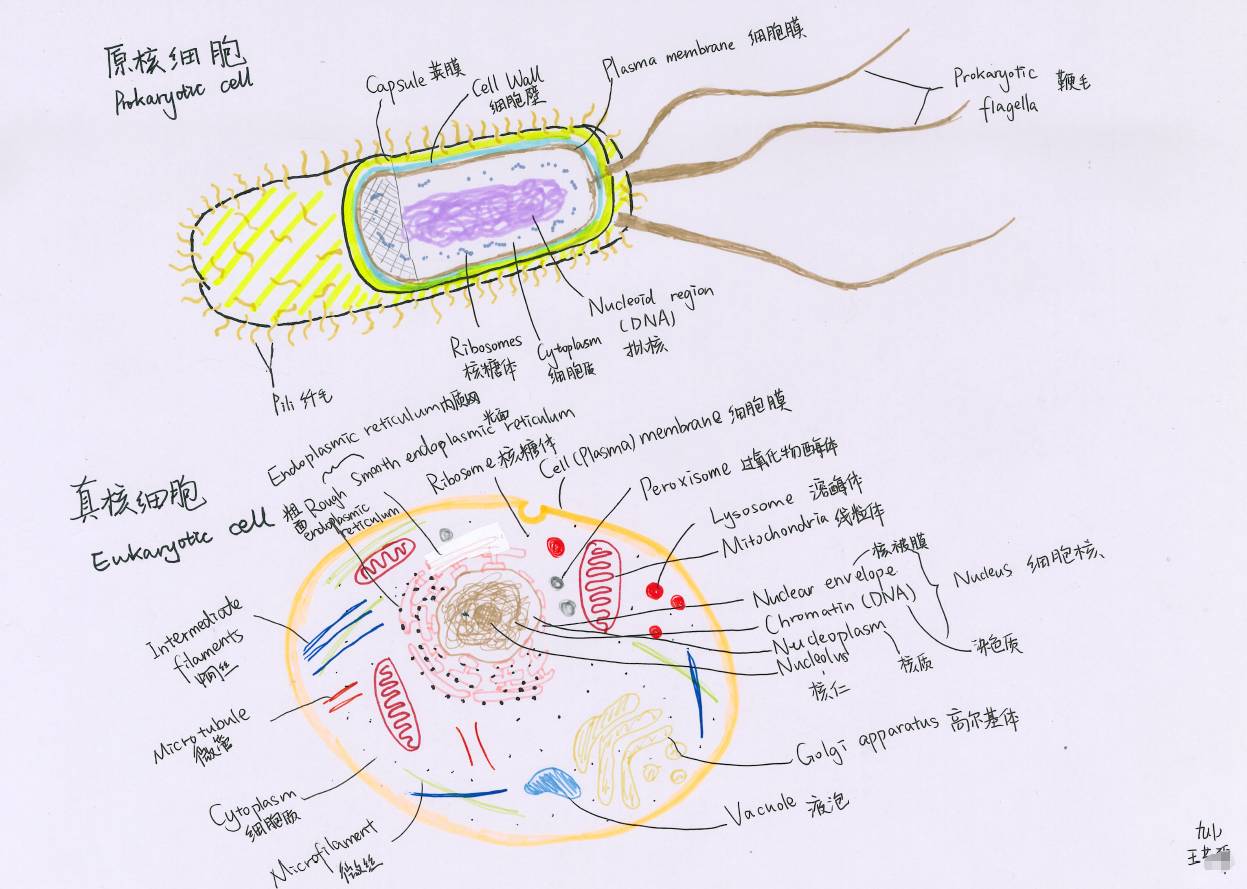 原核细胞
Prokaryotic cell
Capsule 荚膜
Cell Wall
细胞壁
Plasma membrane 细胞膜
Prokaryotic
flagella
鞭毛
Nucleoid region
(DNA)
拟核
Ribosomes
核糖体
Cytoplasm
细胞质
Pili 纤毛
真核细胞
Eukaryotic cell
Endoplasmic reticulum 内质网
光面
Smooth endoplasmic reticulum
粗面
Rough
endoplasmic
reticulum
Ribosome 核糖体
Cell (Plasma) membrane 细胞膜
Peroxisome 过氧化物酶体
Lysosome 溶酶体
Mitochondria 线粒体
核被膜
Nuclear envelope
Chromatin (DNA)
Nucleoplasm
Nucleolus
核仁
核质
染色质
Nucleus 细胞核
Intermediate
filaments
Microtubule
微管
Cytoplasm
细胞质
Microfilament
微丝
Golgi apparatus 高尔基体
Vacuole 液泡
王